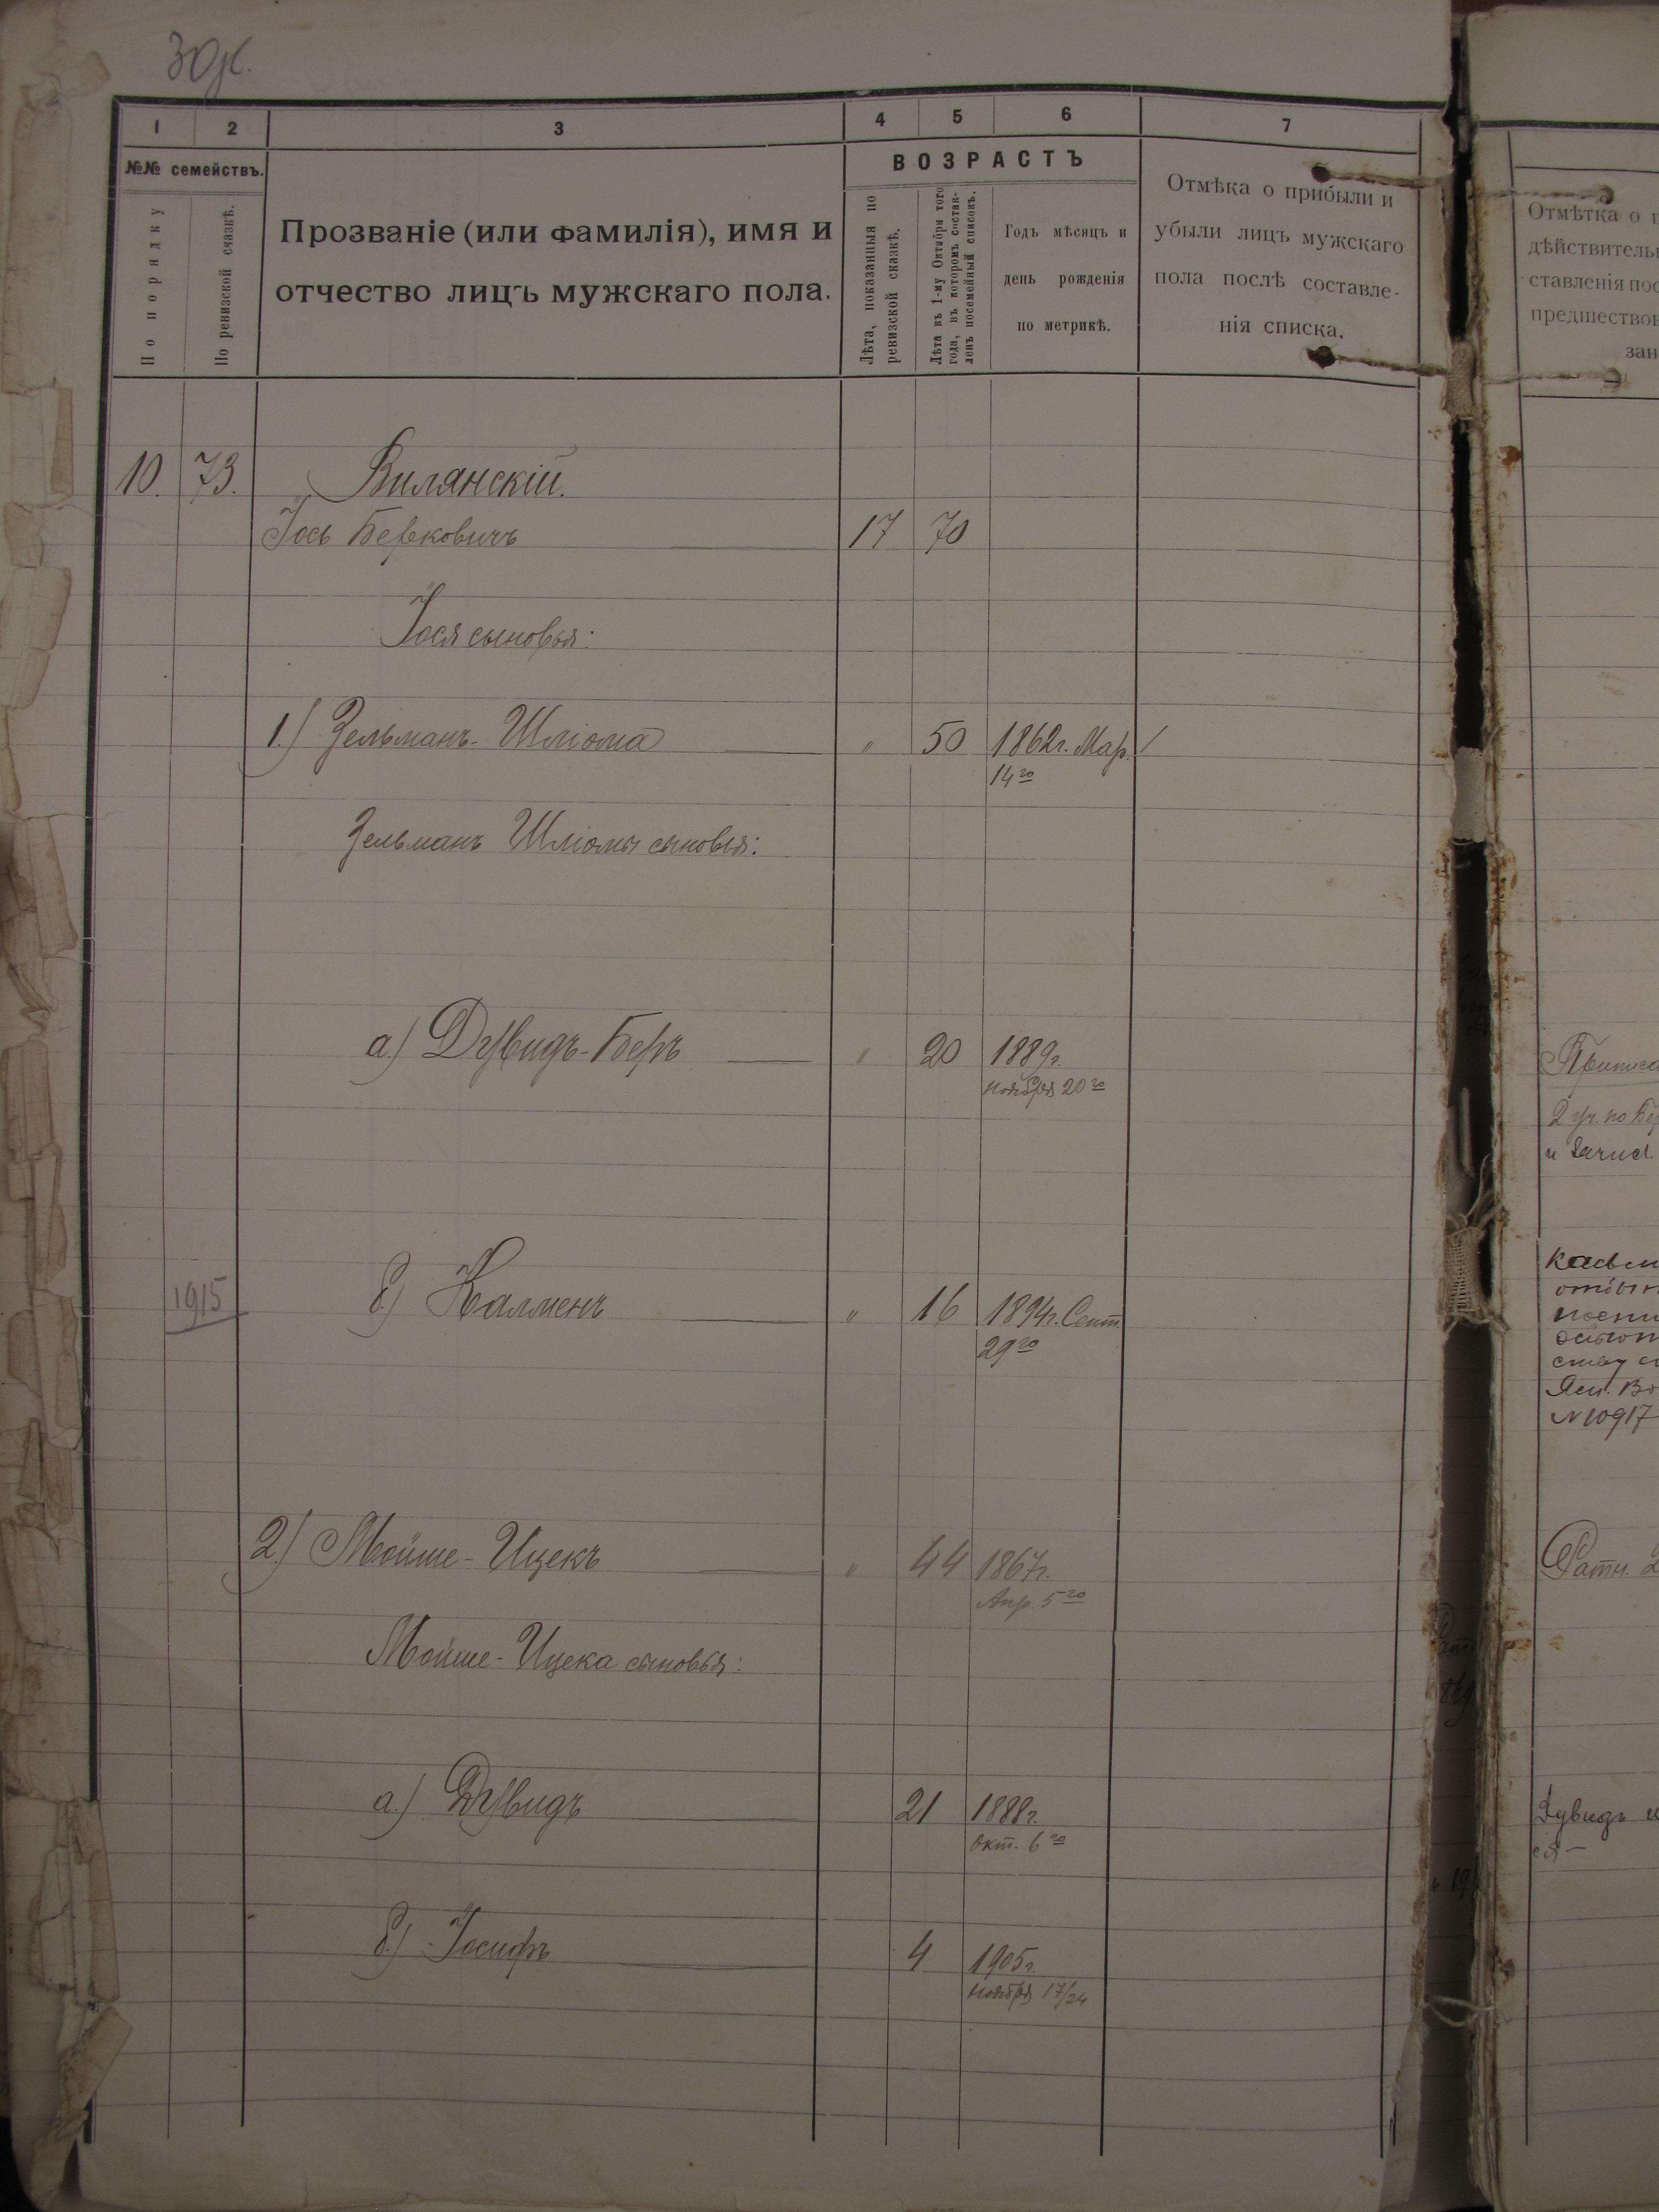 30ж.
1 2 3 4 5 6 7
№№ семействъ.
По порядку
По ревизской сказкѣ.
Прозваніе (или фамилія), имя и
отчество лицъ мужскаго пола.
ВОЗРАСТЪ
Лѣта, показанныя по
ревизской сказкѣ.
Лѣта къ 1-му Октября того
года, въ которомъ состав-
ленъ посемейный списокъ.
Годъ мѣсяцъ и
день рожденія
по метрикѣ.
Отмѣка о прибыли и
убыли лицъ мужскаго
пола послѣ составле-
нія списка.
10. 73. Вилянскій.
Іось Берковичъ 17 70
Іося сыновья:
1.) Зельманъ-Шліома " 50 1862г. Мар.
14го
Зельманъ Шліомы сыновья:
а.) Дувидъ-Беръ " 20 1889г.
ноября 20го
1915 б.) Калменъ " 16 1894г. Сент.
29го
2.) Мойше-Ицекъ " 44 1867г.
Апр. 5го
Мойше-Ицека сыновья:
а.) Дувидъ 21 1888г.
окт. 6го
б.) Іосифъ 4 1905г.
ноября 17/24
Отмѣтка о
дѣйствитель
ставленія пос
предшествов
зан
2 уч. по Бер
и Зачис.
№10917
Ратн. 2
Дувидъ
ся